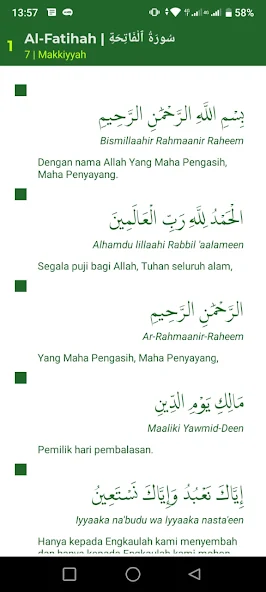 13:57 58%
1 Al-Fatihah | سُورَةُ ٱلْفَاتِحَةِ
7 | Makkiyyah
بِسْمِ اللَّهِ الرَّحْمَٰنِ الرَّحِيمِ
Bismillaahir Rahmaanir Raheem
Dengan nama Allah Yang Maha Pengasih,
Maha Penyayang.
الْحَمْدُ لِلَّهِ رَبِّ الْعَالَمِينَ
Alhamdu lillaahi Rabbil 'aalameen
Segala puji bagi Allah, Tuhan seluruh alam,
الرَّحْمَٰنِ الرَّحِيمِ
Ar-Rahmaanir-Raheem
Yang Maha Pengasih, Maha Penyayang,
مَالِكِ يَوْمِ الدِّينِ
Maaliki Yawmid-Deen
Pemilik hari pembalasan.
إِيَّاكَ نَعْبُدُ وَإِيَّاكَ نَسْتَعِينُ
Iyyaaka na'budu wa Iyyaaka nasta'een
Hanya kepada Engkaulah kami menyembah
dan hanya kepada Engkaulah kami mohon